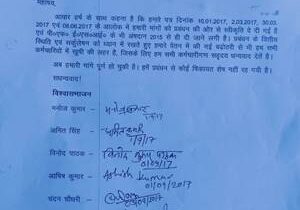 महाशय,
आदर हर्ष के साथ कहना है कि हमारे पत्र दिनांक 10.01.2017, 2.03.2017, 30.03.
2017 एवं 06.06.2017 के आलोक में हमारी मांगो को प्रबंधन की ओर से स्वीकृति दे दी गई है
एवं पी०एफ० ई०एस०आई० के भी अगस्त 2015 से ही दी जाने लगी है। प्रबंधन के वित्तीय
स्थिति एवं सर्कुलेशन को ध्यान में रखते हुए हमारे वेतन में की गई बढोत्तरी से भी हम सभी
कर्मचारियों में खुशी की लहर है, जिसके लिए हम सभी कर्मचारीगण सहृदय धन्यवाद देते हैं।
अब हमारी मांगे पूर्ण हो चुकी है। हमें प्रबंधन से कोई शिकायत शेष नहीं रह गयी है।
सधन्यवाद!
विश्वासभाजन
मनोज कुमार - मनोज कुमार
अमित सिंह - अमित सिंह
1/9/17
विनोद पाठक - विनोद कुमार पाठक
01/09/2017
आशिष कुमार - Ashish Kumar
01/09/2017
चंदन चौधरी -